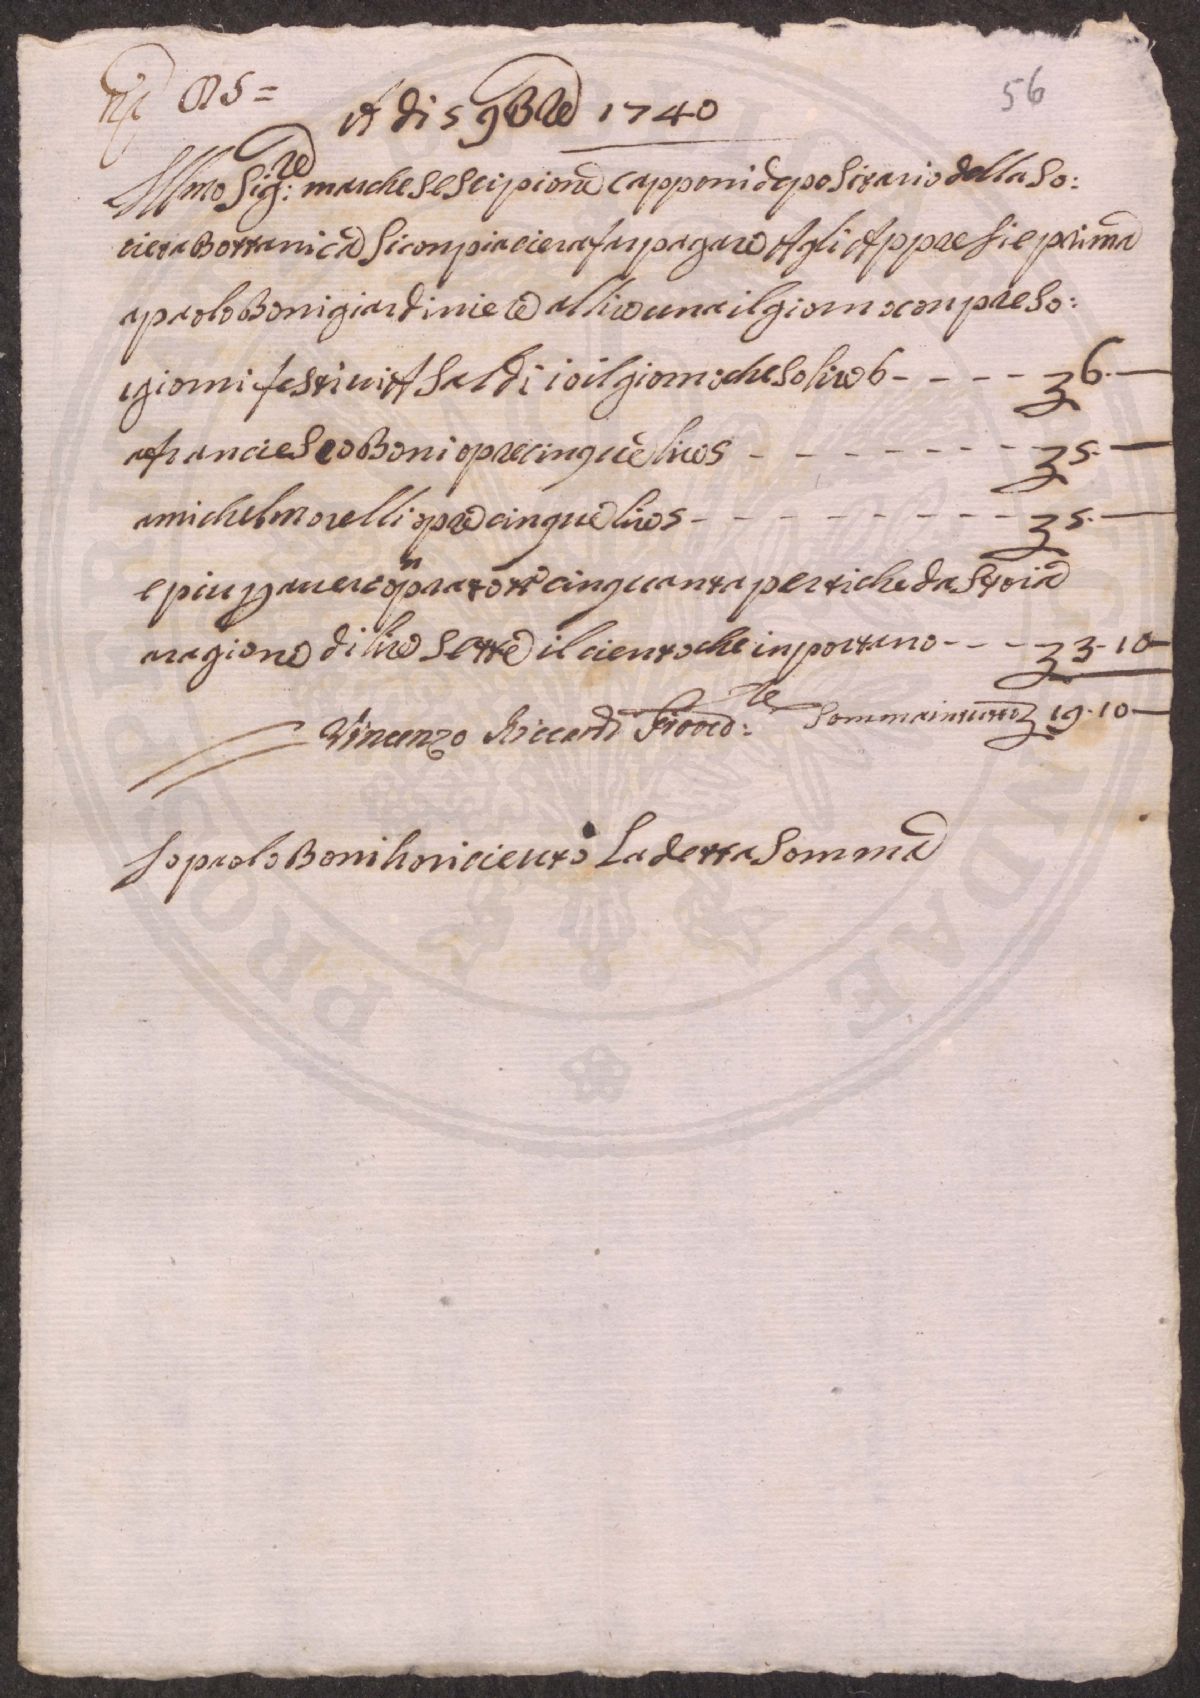 56
A di 5 9bre 1740
Illmo Sig:re marchese Scipione Capponi depositario della So:
cieta Bottanica Si conpiaciera far pagare Agli Appresi e prima
a paolo Boni giardiniere a lire una il giorno conpreso:
i giorni festivi A Saldi il giorno che so lire 6 - - - - 6.—
a franciesco Boni opre cinque lire 5 - - - - - - - - 5.—
a michel morelli opre cinque lire 5 - - - - - - - - - 5.—
e piu per avere conprato cinquanta pertiche da Stoia
a ragione di lire Sette il ciento che inportano - - - 3.10—
Vincenzo Riccardi Provved:re Somma in tutto 19.10—
Io paolo Boni ho ricieuto La detta Somma